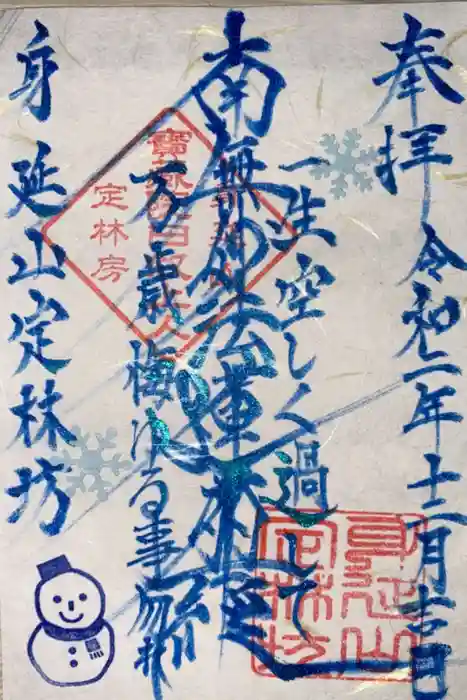 奉拝 令和二年十二月吉日
一生空しく過して
南無妙法蓮華経
万歳悔ゆる事勿れ
身延山定林坊
定林房
身延山
定林坊